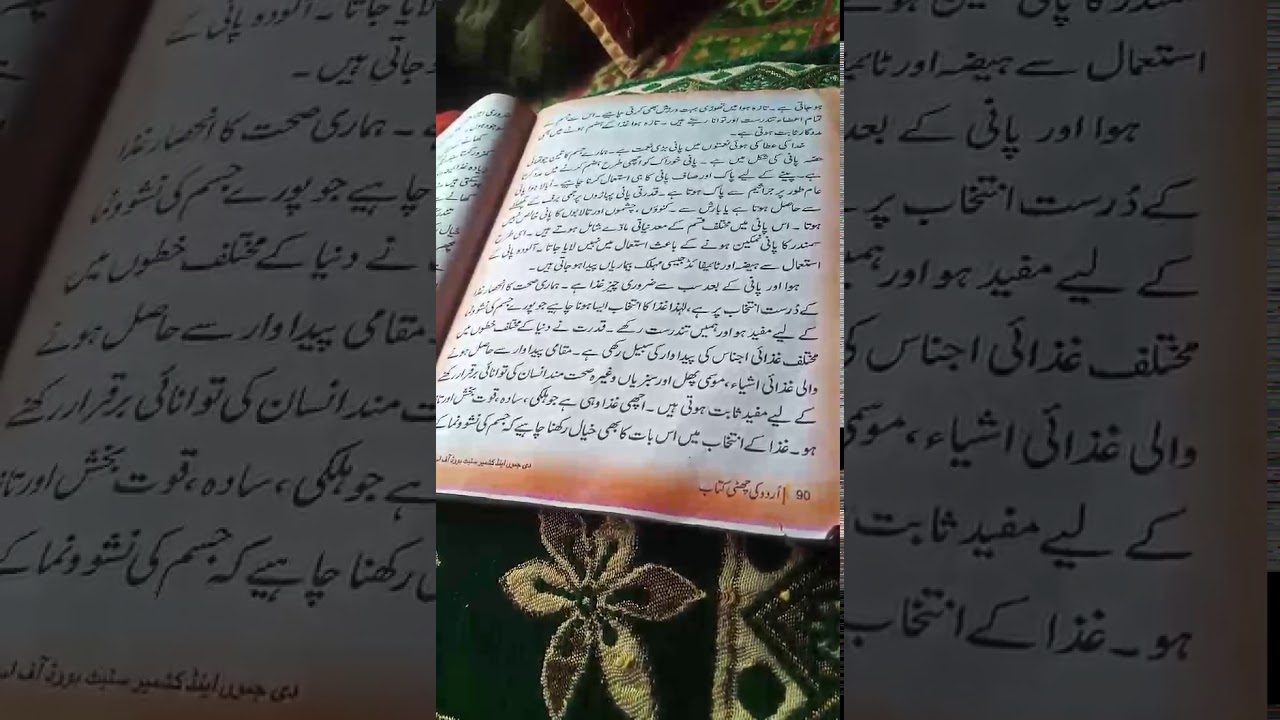 ہو جاتی ہے ۔ تازہ ہوا میں تھوڑی بہت ورزش بھی کرنی چاہیے ۔ اس سے
تمام اعضاء تندرست اور توانا رہتے ہیں ۔ تازہ ہوا غذا کے ہضم ہونے میں بھی
مددگار ثابت ہوتی ہے۔
خدا کی عطا کی ہوئی نعمتوں میں پانی بڑی نعمت ہے ۔ ہمارے جسم کا تین چوتھائی
حصّہ پانی کی شکل میں ہے ۔ پانی خوراک کو اچھی طرح ہضم کرنے میں مدد
ہے۔ پینے کے لیے پاک اور صاف پانی کا ہی استعمال کرنا چاہیے۔ اُبالا ہوا پانی
عام طور پر جراثیم سے پاک ہوتا ہے ۔ قدرتی پانی پہاڑوں پر جمی برف کے
سے حاصل ہوتا ہے یا بارش سے ۔ کنوؤں، چشموں اور تالابوں کا پانی خالص نہیں
ہوتا ۔ اس پانی میں مختلف قسم کے معدنیاتی مادّے شامل ہوتے ہیں ۔ اسی طرح
سمندر کا پانی نمکین ہونے کے باعث استعمال میں نہیں لایا جاتا ۔ آلودہ پانی کے
استعمال سے ہیضہ اور ٹائیفائڈ جیسی مہلک بیماریاں پیدا ہو جاتی ہیں ۔
ہوا اور پانی کے بعد سب سے ضروری چیز غذا ہے ۔ ہماری صحت کا انحصار غذا
کے دُرست انتخاب پر ہے، لہٰذا غذا کا انتخاب ایسا ہونا چاہیے جو پورے جسم کی نشوونما
کے لیے مفید ہو اور ہمیں تندرست رکھے ۔ قدرت نے دنیا کے مختلف خطوں میں
مختلف غذائی اجناس کی پیداوار کی سبیل رکھی ہے ۔ مقامی پیداوار سے حاصل ہونے
والی غذائی اشیاء، موسمی پھل اور سبزیاں وغیرہ صحت مند انسان کی توانائی برقرار رکھنے
کے لیے مفید ثابت ہوتی ہیں ۔ اچھی غذا وہی ہے جو ہلکی، سادہ، قوت بخش اور
ہو۔ غذا کے انتخاب میں اس بات کا بھی خیال رکھنا چاہیے کہ جسم کی نشوونما کے
دی جموں اینڈ کشمیر سٹیٹ بورڈ آف
90 | اُردو کی چھٹی کتاب